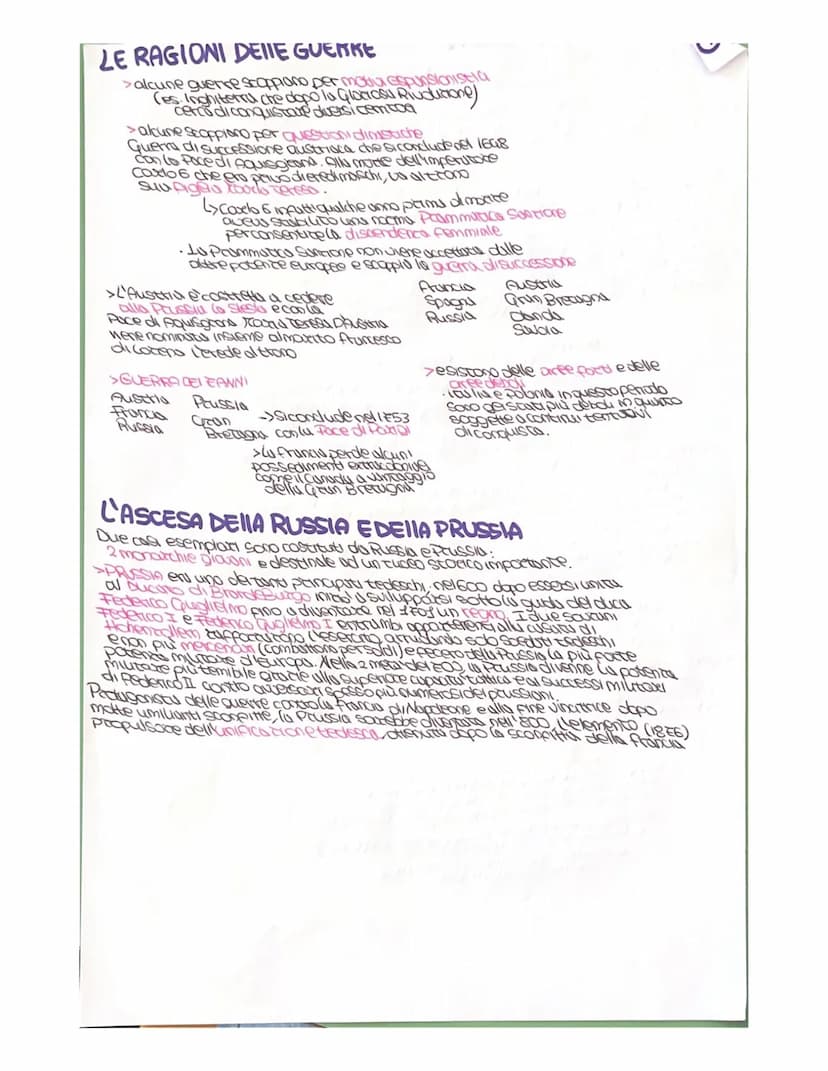 LE RAGIONI DELLE GUERRE
>alcune guerre scoppiano per motivi espansionistici
(es. Inghilterra che dopo la Gloriosa Rivoluzione)
cercò di conquistare diversi territori
>alcune scoppiano per questioni dinastiche
Guerra di successione austriaca che si conclude nel 1648
con la Pace di Aquisgrana. Alla morte dell'imperatore
Carlo 6 che era privo di eredi maschi, va al trono
sua figlia Maria Teresa.
↳Carlo 6 infatti qualche anno prima di morire
aveva stabilito una norma Prammatica Sanzione
per consentire la discendenza femminile
·La Prammatica Sanzione non viene accettata dalle
altre potenze europee e scoppia la guerra di successione
Francia Austria
Spagna Gran Bretagna
Russia Olanda
Savoia
>L'Austria è costretta a cedere
alla Prussia la Slesia e con la
Pace di Aquisgrana Maria Teresa D'Austria
viene nominata insieme al marito Francesco
di Lorena l'erede al trono
>esistono delle aree forti e delle
aree deboli
·Italia e Polonia in questo periodo
sono gli stati più deboli in quanto
soggette a continui tentativi
di conquista.
>GUERRA DEI 7 ANNI
Austria Prussia
Francia Gran
Russia Bretagna
->Si conclude nel 1753
con la Pace di Parigi
>La Francia perde alcuni
possedimenti extracoloniali
come il Canada a vantaggio
della Gran Bretagna
L'ASCESA DELLA RUSSIA E DELLA PRUSSIA
Due casi esemplari sono costituiti da Russia e Prussia:
2 monarchie giovani e destinate ad un ruolo storico importante.
>PRUSSIA era uno dei tanti principati tedeschi. nel 600 dopo essersi unita
al Ducato di Brandeburgo iniziò a svilupparsi sotto la guida del duca
Federico Guglielmo fino a diventare nel 1701 un regno. I due sovrani
Federico I e Federico Guglielmo I entrambi appartenenti alla casata di
Hohenzollern rafforzarono l'esercito arruolando solo soldati tedeschi
e non più mercenari (combattono per soldi) e fecero della Prussia la più forte
potenza militare d'Europa. Nella 2 metà del 700, la Prussia divenne la potenza
militare più temibile grazie alla superiore capacità tattica e ai successi militari
di Federico II contro avversari spesso più numerosi dei prussiani.
Protagonista delle guerre contro la Francia di Napoleone e alla fine vincitrice dopo
molte umilianti sconfitte, la Prussia sarebbe diventata nell'800 l'elemento (1877)
propulsore dell'unificazione tedesca, ottenuta dopo la sconfitta della Francia